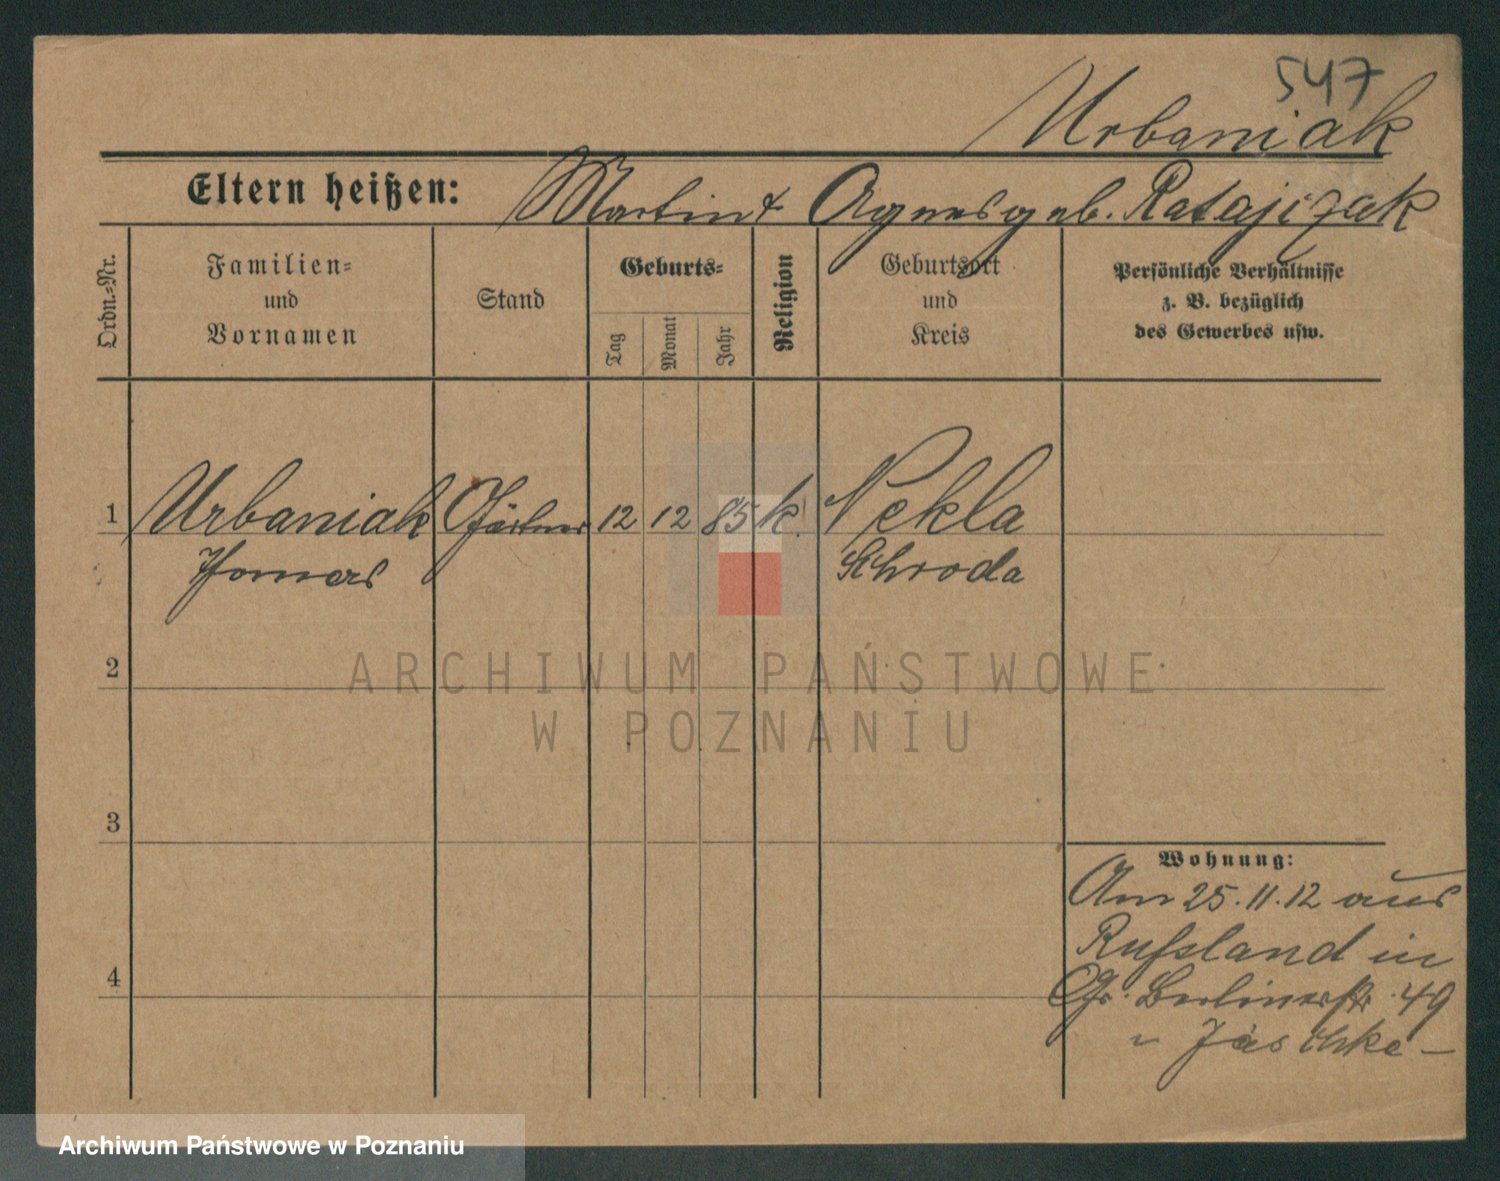 547
Urbaniak
Eltern heißen: Martin & Agnes geb. Ratajczak
Ordn.-Nr.
Familien-
und
Vornamen
Stand
Geburts-
Tag
Monat
Jahr
Religion
Geburtsort
und
Kreis
Persönliche Verhältnisse
z. B. bezüglich
des Gewerbes usw.
1 Urbaniak Gärtner 12 12 85 k. Nekla
Thomas Schroda
2
ARCHIWUM PAŃSTWOWE
W POZNANIU
3
Wohnung:
Am 25.11.12 aus
Russland in
4
Gr. Berlinerstr. 49
Jäschke –
Archiwum Państwowe w Poznaniu